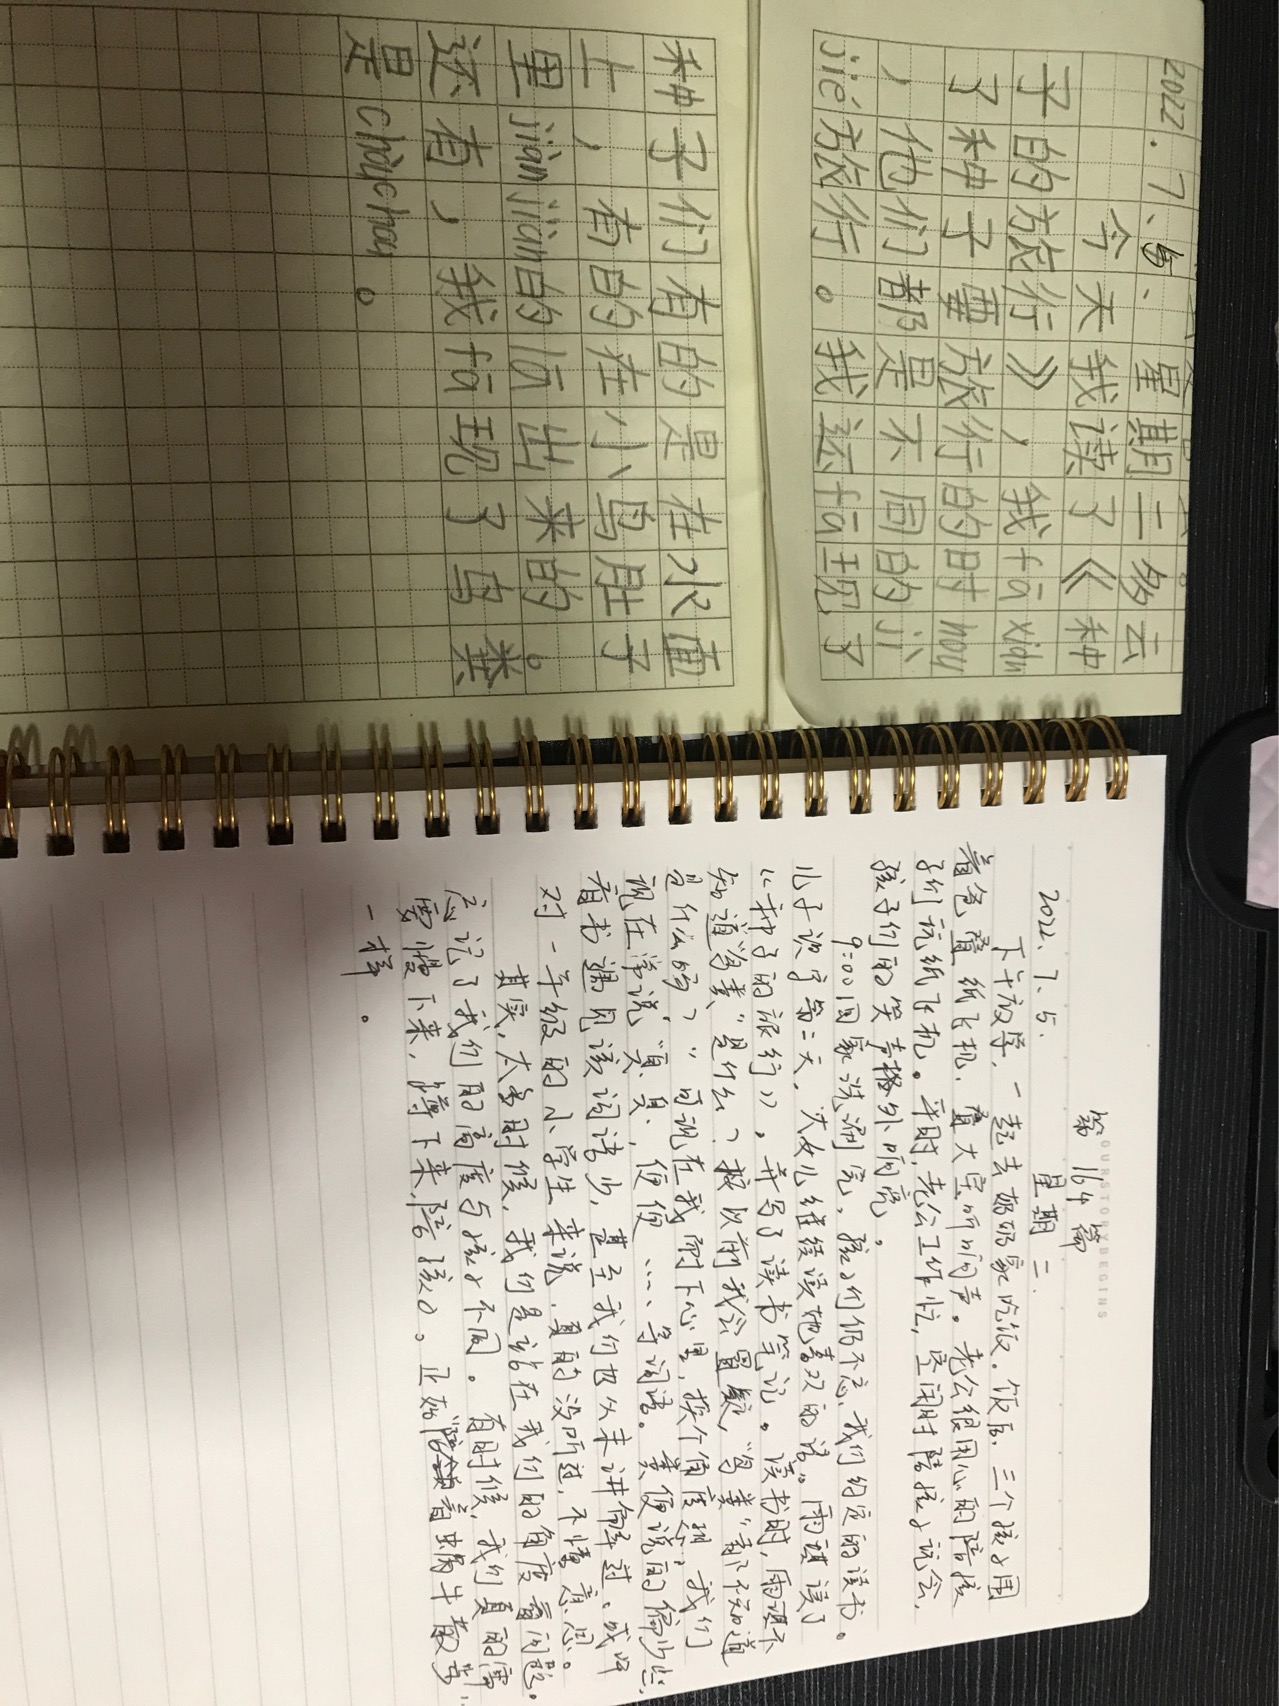 2022.7.5、星期二多云
今天我读了《种
子的旅行》，我fā xiàn
了种子要旅行的时hou
，他们都是不同的jì
jié旅行。我还fā现了
种子们有的是在水面
上，有的在小鸟肚子
里jiān jiān的拉出来的。
还有，我fā现了鸟粪
是chòuchou。
OURSTORYBEGINS
第164篇
2022.7.5. 星期二.
下午放学，一起去妈妈家吃饭。饭后，三个孩子围
着爸叠纸飞机，叠大宝听响声。老公很用心的陪孩
子们玩纸飞机。平时，老公工作忙，空闲时陪孩子玩会，
孩子们的笑声格外响亮。
9:00回家洗涮完，孩子们仍不忘，我们约定的读书。
儿子识字第二天，大女儿继续读她喜欢的书。雨琪读了
《种子的旅行》，并写了读书笔记。读书时，雨琪不
知道"鸟粪"是什么？按以前我会置疑，"鸟粪"都不知道
是什么吗？"可现在我耐下心来，换个角度想，我们
现在常说"臭臭"，便便……等词语。粪便说的偏少些，
看书遇见该词语少，甚至我们也从未讲解过。或许
对一年级的小学生来说，真的没听过，不懂意思。
其实，太多时候，我们是站在我们的角度看问题。
忘记了我们的高度与孩子不同。有时候，我们真的需
要慢下来，蹲下来，陪孩子。正如"陪着蜗牛散步"
一样。